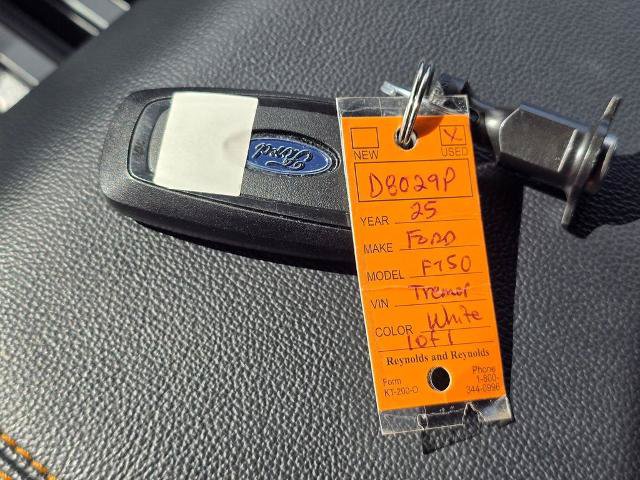 Ford
X
NEW USED
D8029P
YEAR 25
MAKE FORD
MODEL F150
VIN Tremor
COLOR White
1 of 1
Reynolds and Reynolds
Form
KT-200-O
Phone
1-800-
344-0996